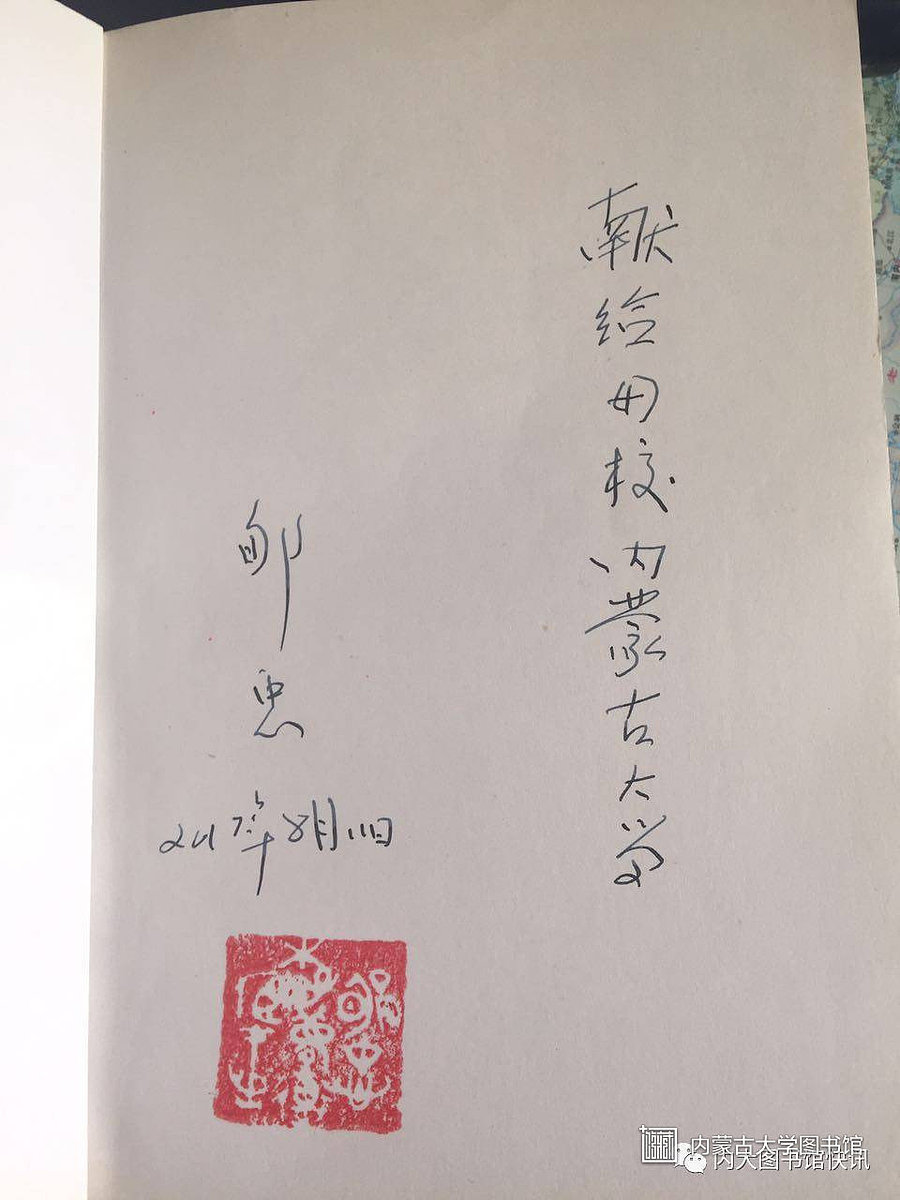 献给母校内蒙古大学
郇忠
2017年8月11日
内蒙古大学图书馆
内大图书馆快讯